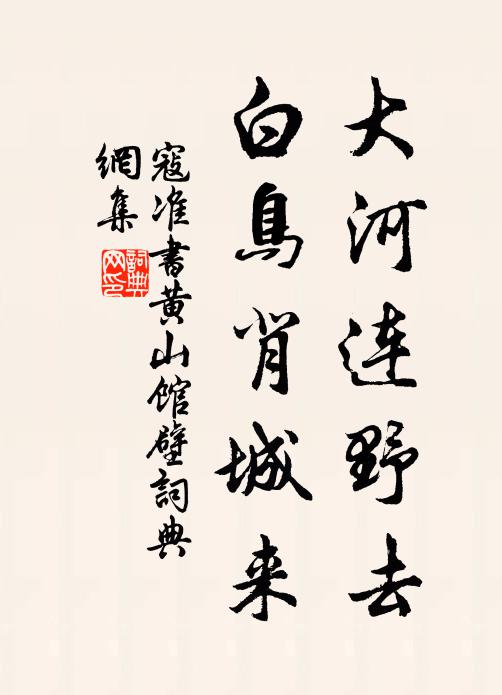 大河連野去
白鳥背城来
寇准書黄山館壁詞典
網集
詞典
网印